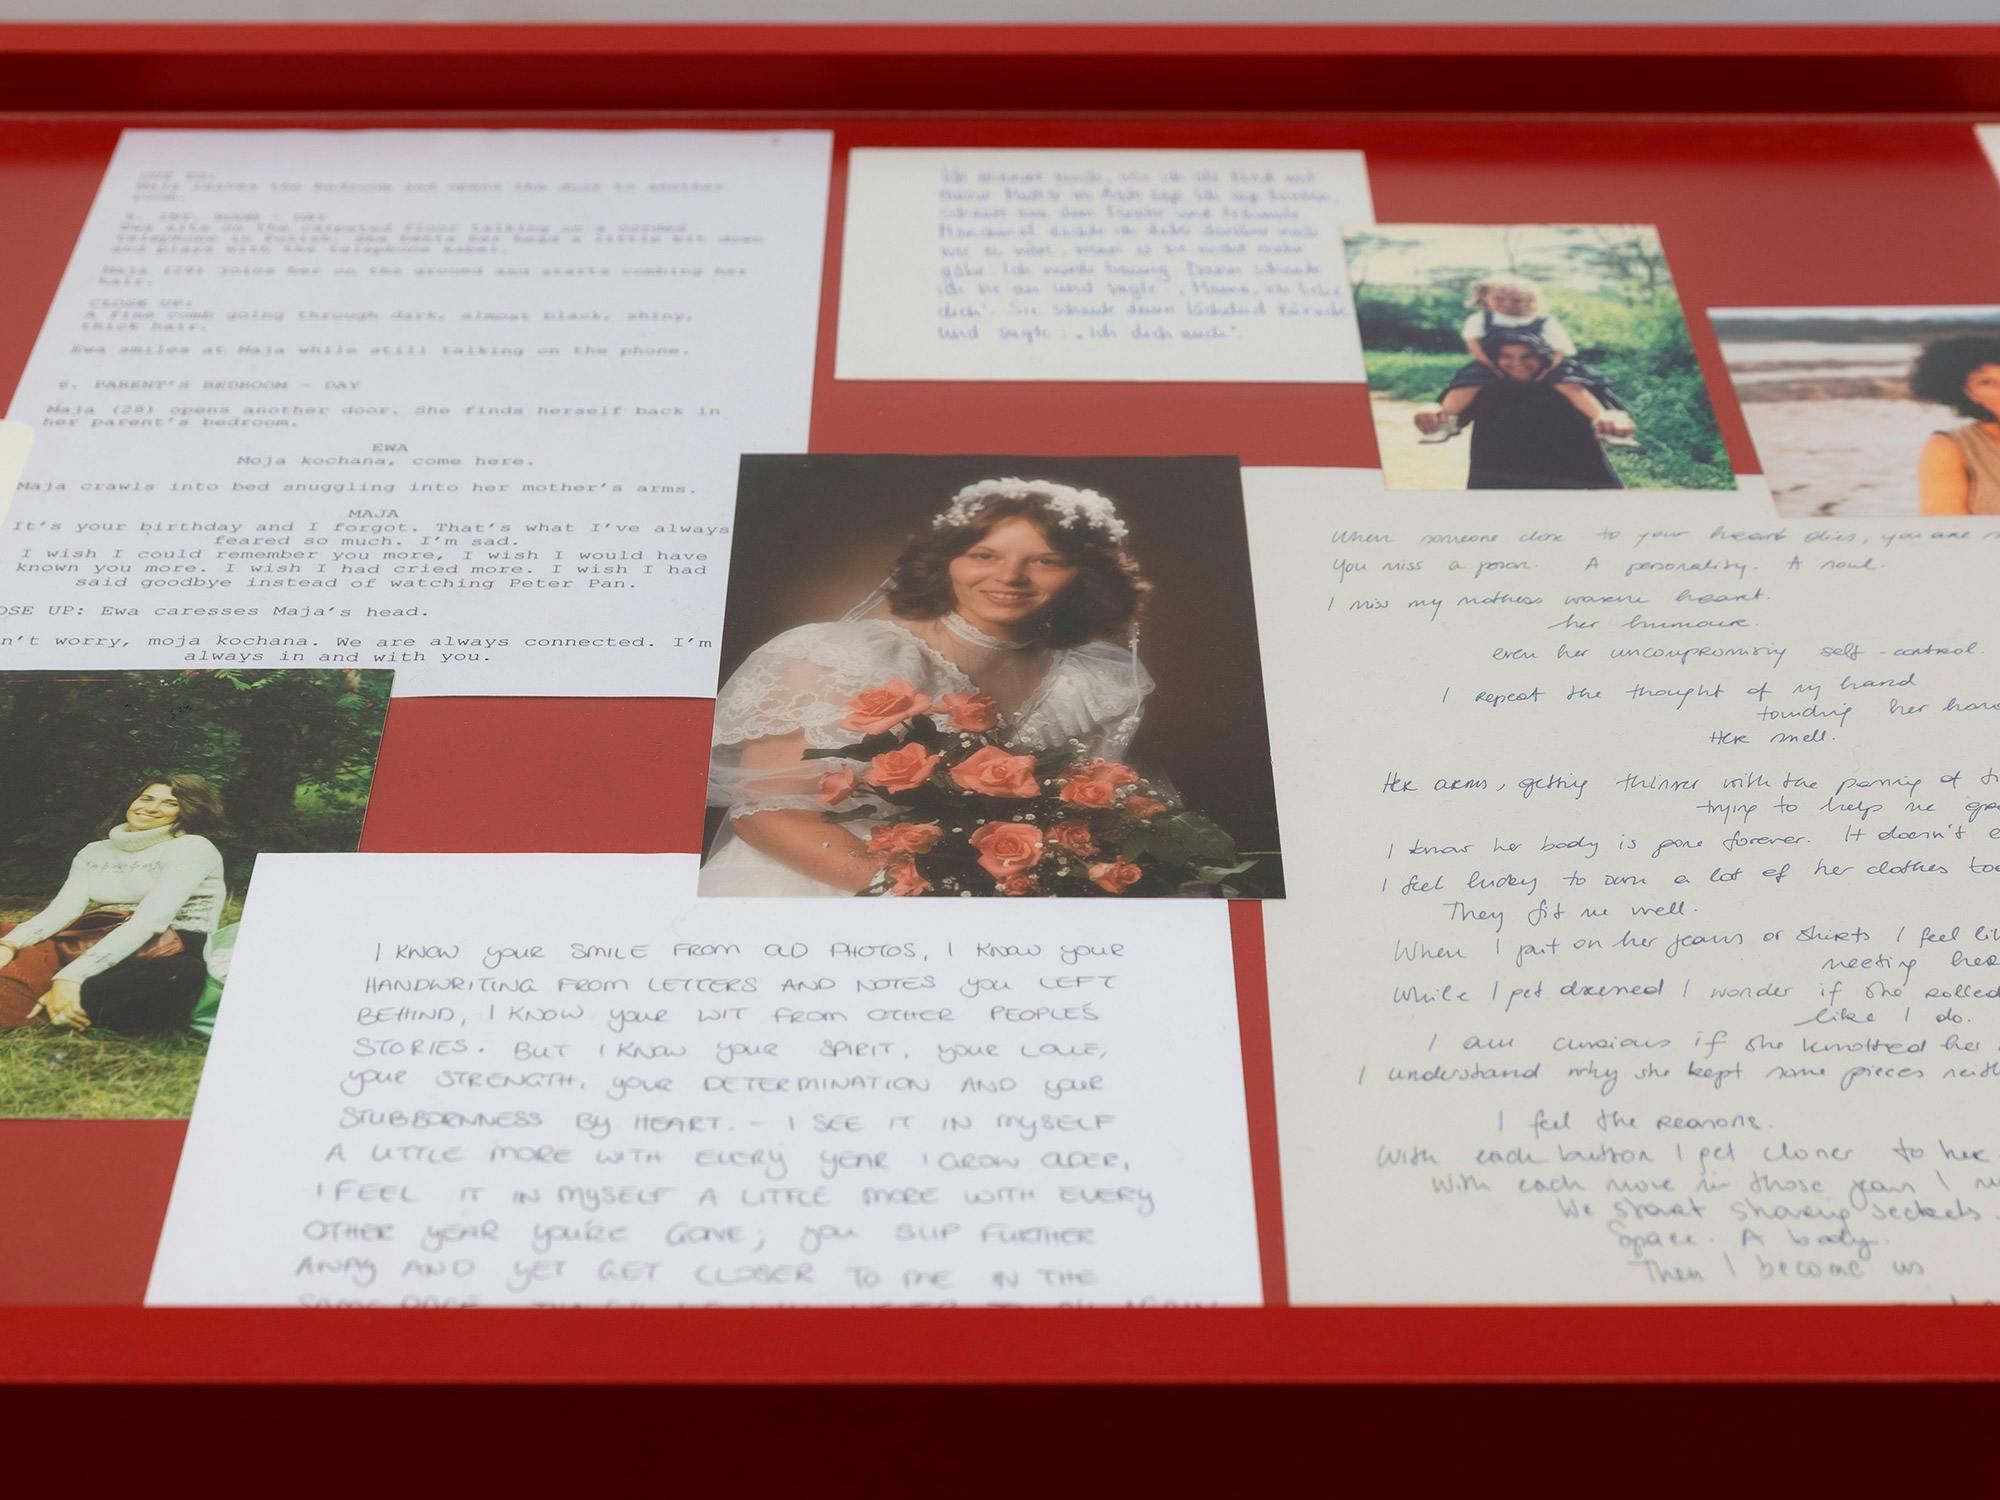 CLOSE UP:
Maja leaves the bedroom and opens the door to another
room.
5. INT. ROOM - DAY
Ewa sits on the carpeted floor talking on a corded
telephone in Polish. She bents her head a little bit down
and plays with the telephone kabel.
Maja (28) joins her on the ground and starts combing her
hair.
CLOSE UP:
A fine comb going through dark, almost black, shiny,
thick hair.
Ewa smiles at Maja while still talking on the phone.
6. PARENT'S BEDROOM - DAY
Maja (28) opens another door. She finds herself back in
her parent's bedroom.
EWA
Moja kochana, come here.
Maja crawls into bed snuggling into her mother's arms.
MAJA
It's your birthday and I forgot. That's what I've always
feared so much. I'm sad.
I wish I could remember you more, I wish I would have
known you more. I wish I had cried more. I wish I had
said goodbye instead of watching Peter Pan.
OSE UP: Ewa caresses Maja's head.
n't worry, moja kochana. We are always connected. I'm
always in and with you.
Ich erinnere mich, wie ich als Kind mit
meiner Mutter im Auto
schaute aus dem Fenster und träumte.
Manchmal dachte ich dabei darüber nach
wie es wäre, wenn es sie nicht mehr
gäbe. Ich wurde traurig. Dann schaute
ich sie an und sagte: „Mama, ich liebe
dich". Sie schaute dann lächelnd zurück
und sagte: „Ich dich auch".
When someone close to your heart dies, you are
You miss a person. A personality. A soul.
I miss my mothers warm heart.
her humour.
even her uncompromising self-control.
I repeat the thought of my hand
touching her
Her smell.
Her arms, getting thinner with the passing of
trying to help me
I know her body is gone forever. It doesn't
I feel lucky to own a lot of her clothes
They fit me well.
When I put on her jeans or shirts I feel
meeting her
While I get dressed I wonder if she rolled
like I do.
I am curious if she knotted her
I understand why she kept some pieces
I feel the reasons.
With each button I get closer to her
With each move in those jeans I
We start sharing secrets.
Space. A body.
Then I become us
I KNOW your SMILE FROM OLD PHOTOS, I KNOW your
HANDWRITING FROM LETTERS AND NOTES you LEFT
BEHIND, I KNOW your WIT FROM OTHER PEOPLE'S
STORIES. BUT I KNOW your SPIRIT, your LOVE,
your STRENGTH, your DETERMINATION AND your
STUBBORNNESS By HEART. - I SEE IT IN MySELF
A LITTLE MORE WITH EVERy yEAR I GROW OLDER,
I FEEL IT IN MySELF A LITTLE MORE WITH EVERy
OTHER yEAR you'RE GONE; you SLIP FURTHER
AWAy AND yET GET CLOSER TO ME IN THE